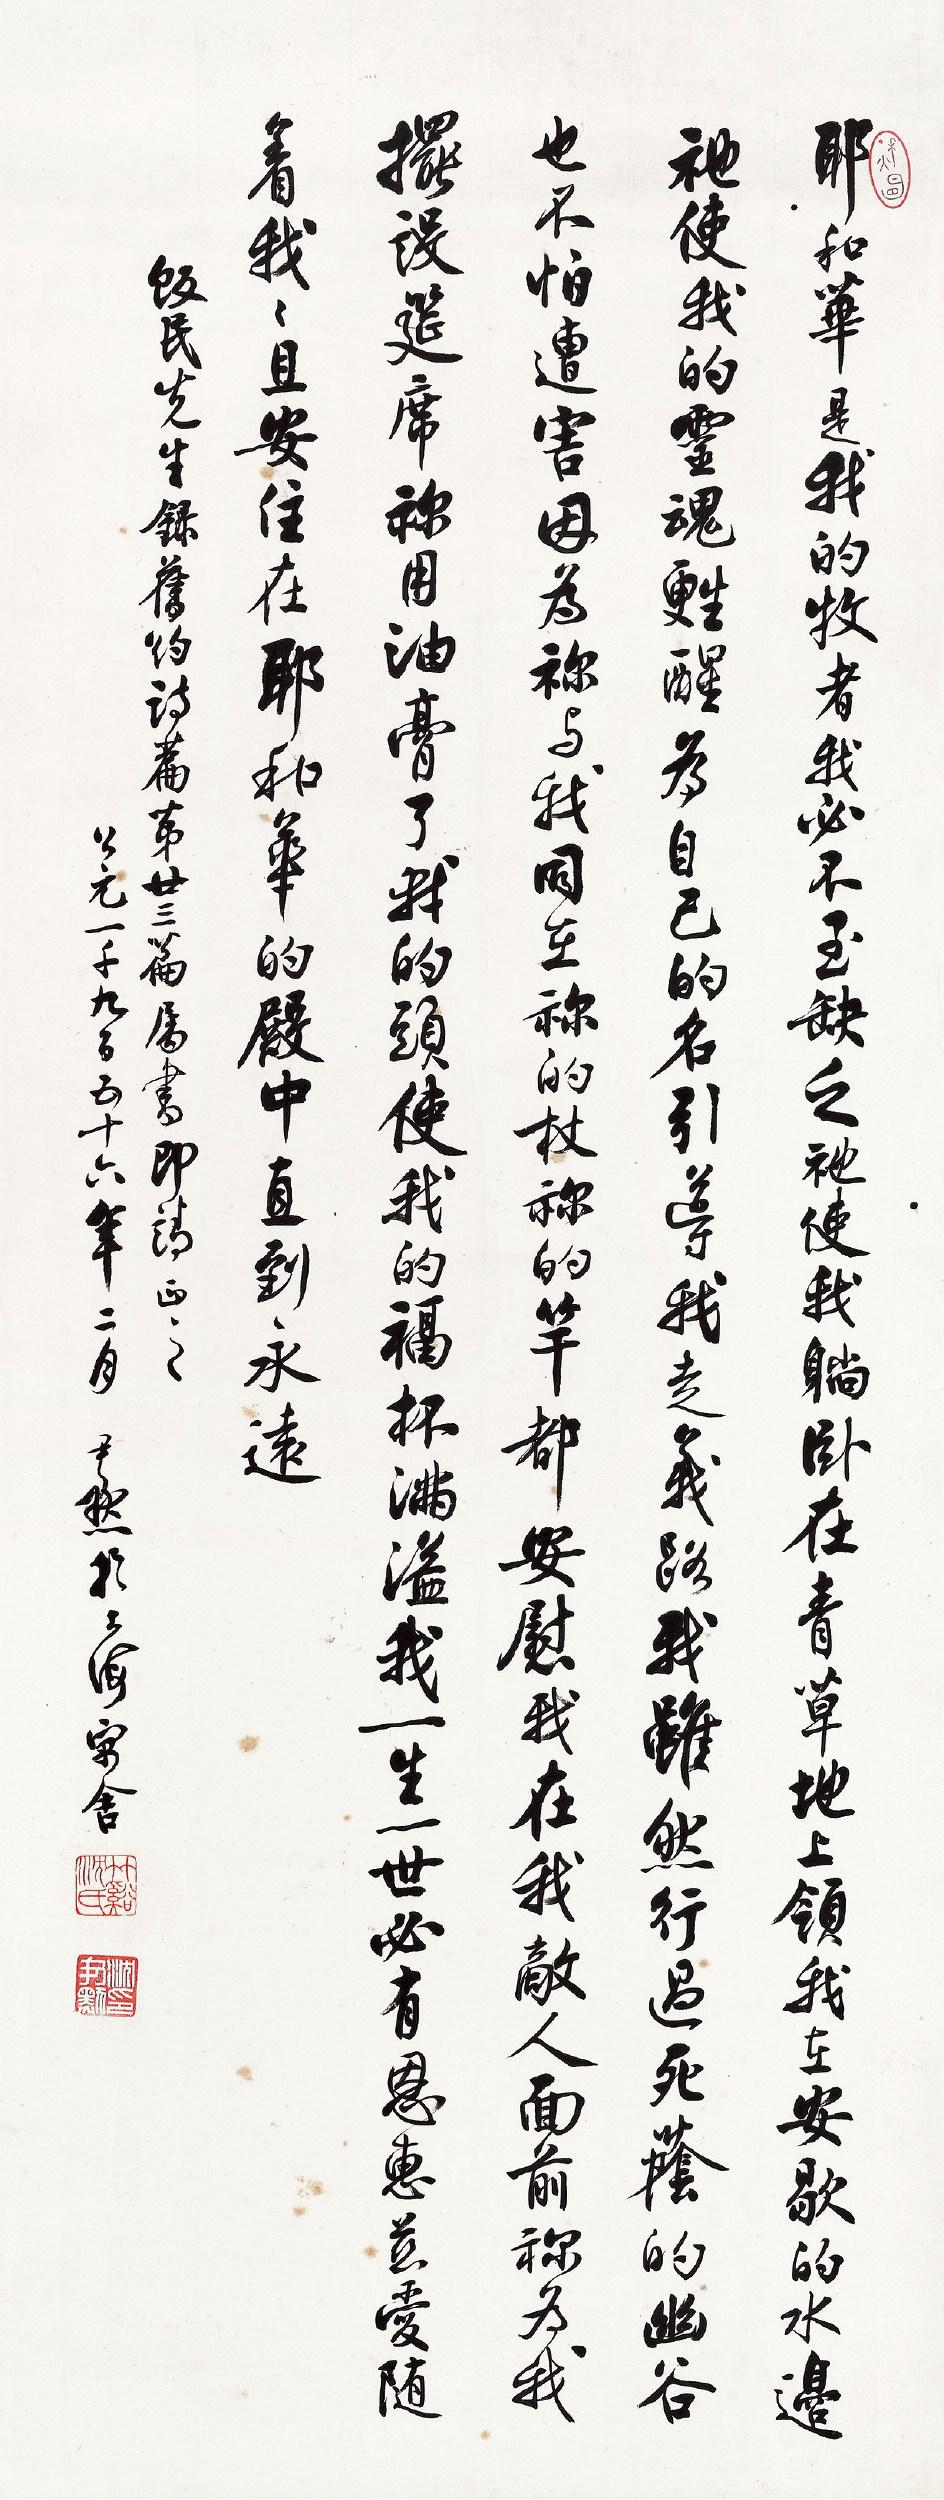 耶和華是我的牧者我必不至缺乏祂使我躺卧在青草地上領我在安歇的水邊
祂使我的靈魂甦醒為自己的名引導我走義路我雖然行過死蔭的幽谷
也不怕遭害因為祢与我同在祢的杖祢的竿都安慰我在我敵人面前祢為我
擺設筵席祢用油膏了我的頭使我的福杯滿溢我一生一世必有恩惠慈愛随
着我〻且安住在耶和華的殿中直到永遠
飯民先生錄舊約詩篇第廿三篇屬書即請正之
公元一千九百五十六年二月 尹默於上海寓舍
竹谿沈氏
沈尹默印